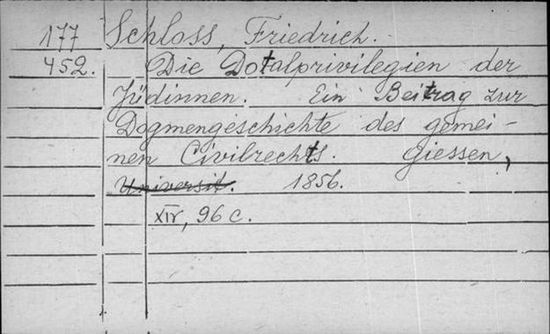 177 Schloss, Friedrich.
452. Die Dotalprivilegien der
Jüdinnen. Ein Beitrag zur
Dogmengeschichte des gemei-
nen Civilrechts. Giessen,
Universit. 1856.
XIV, 96 c.